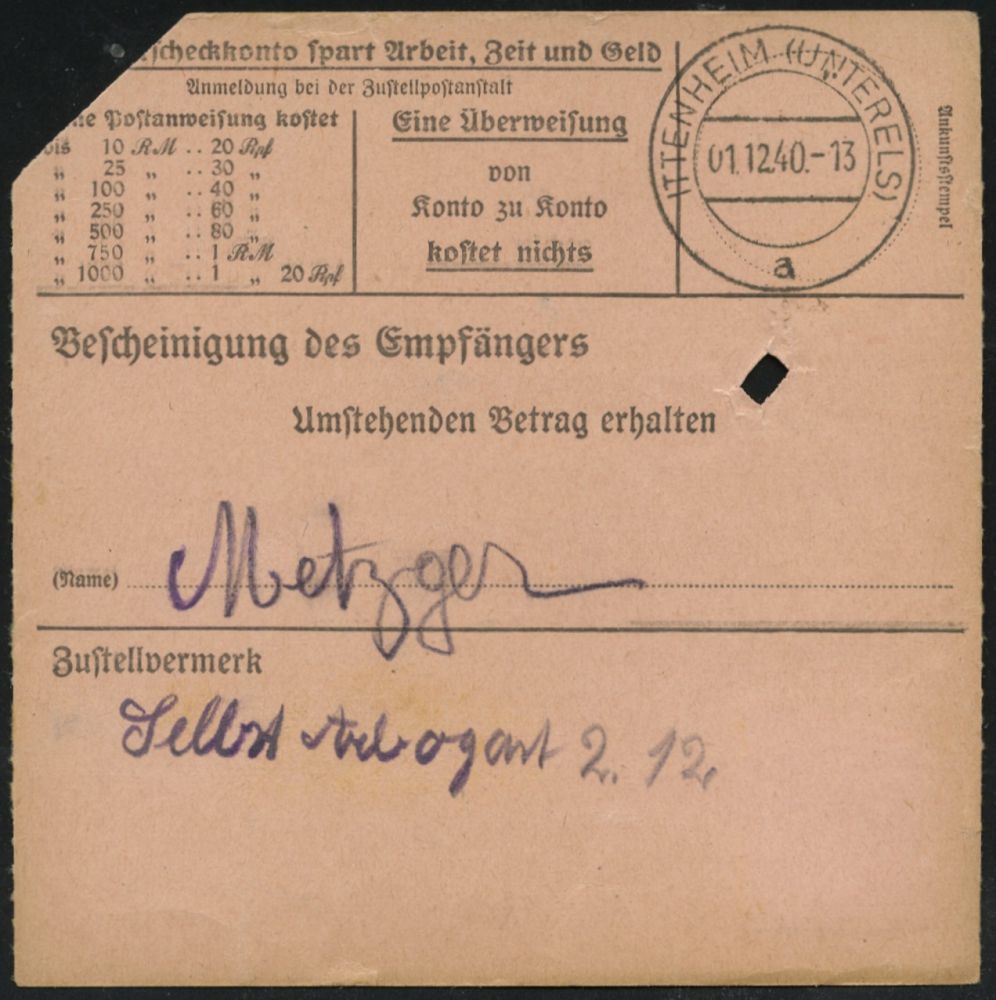 scheckkonto spart Arbeit, Zeit und Geld
Anmeldung bei der Zustellpostanstalt
ne Postanweisung kostet
bis 10 RM .. 20 Rpf
„ 25 „ .. 30 „
„ 100 „ .. 40 „
„ 250 „ .. 60 „
„ 500 „ .. 80 „
„ 750 „ .. 1 RM
„ 1000 „ .. 1 „ 20 Rpf
Eine Überweisung
von
Konto zu Konto
kostet nichts
ITTENHEIM (UNTERELS)
01.12.40.-13
a
Ankunftsstempel
Bescheinigung des Empfängers
Umstehenden Betrag erhalten
(Name) Metzger
Zustellvermerk
Selbst Arbogast 2. 12.